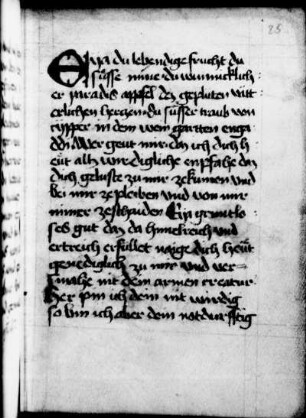 25
Eya du lebendige frucht du
süsse mine du wunnicklich
er paradis appfel des geplüten vätt
erlichen herczen du süsser traub von
cypper in dem wein gartten enga
ddi Wer geit mir das ich dich h
eüt alz wirdigliche enpfahe das
dich geluste zu mir zekumen vnd
bei mir ze pleiben vnd von mir
nimer zeschaiden Eia grüntlo
ses gut das da himelreich vnd
ertreich erfüllet naige dich heüt
genediglich zu mir vnd ver
smahe nit dein armen creatur
Her pin ich dein nit wirdig
so bin ich aber dein notdürfftig